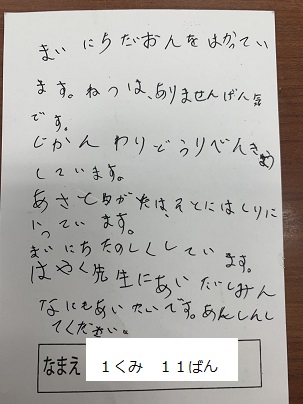 まいにちだおんをはかってい
ます。ねつは、ありませんげん気
です。
じかんわりどうりべんきょう
しています。
あさと夕がたは、そとにはしりに
いっています。
まいにちたのしくしてい
ます。
はやく先生にあいたいしみん
なにもあいたいです。あんしんし
てください。
なまえ １くみ １１ばん